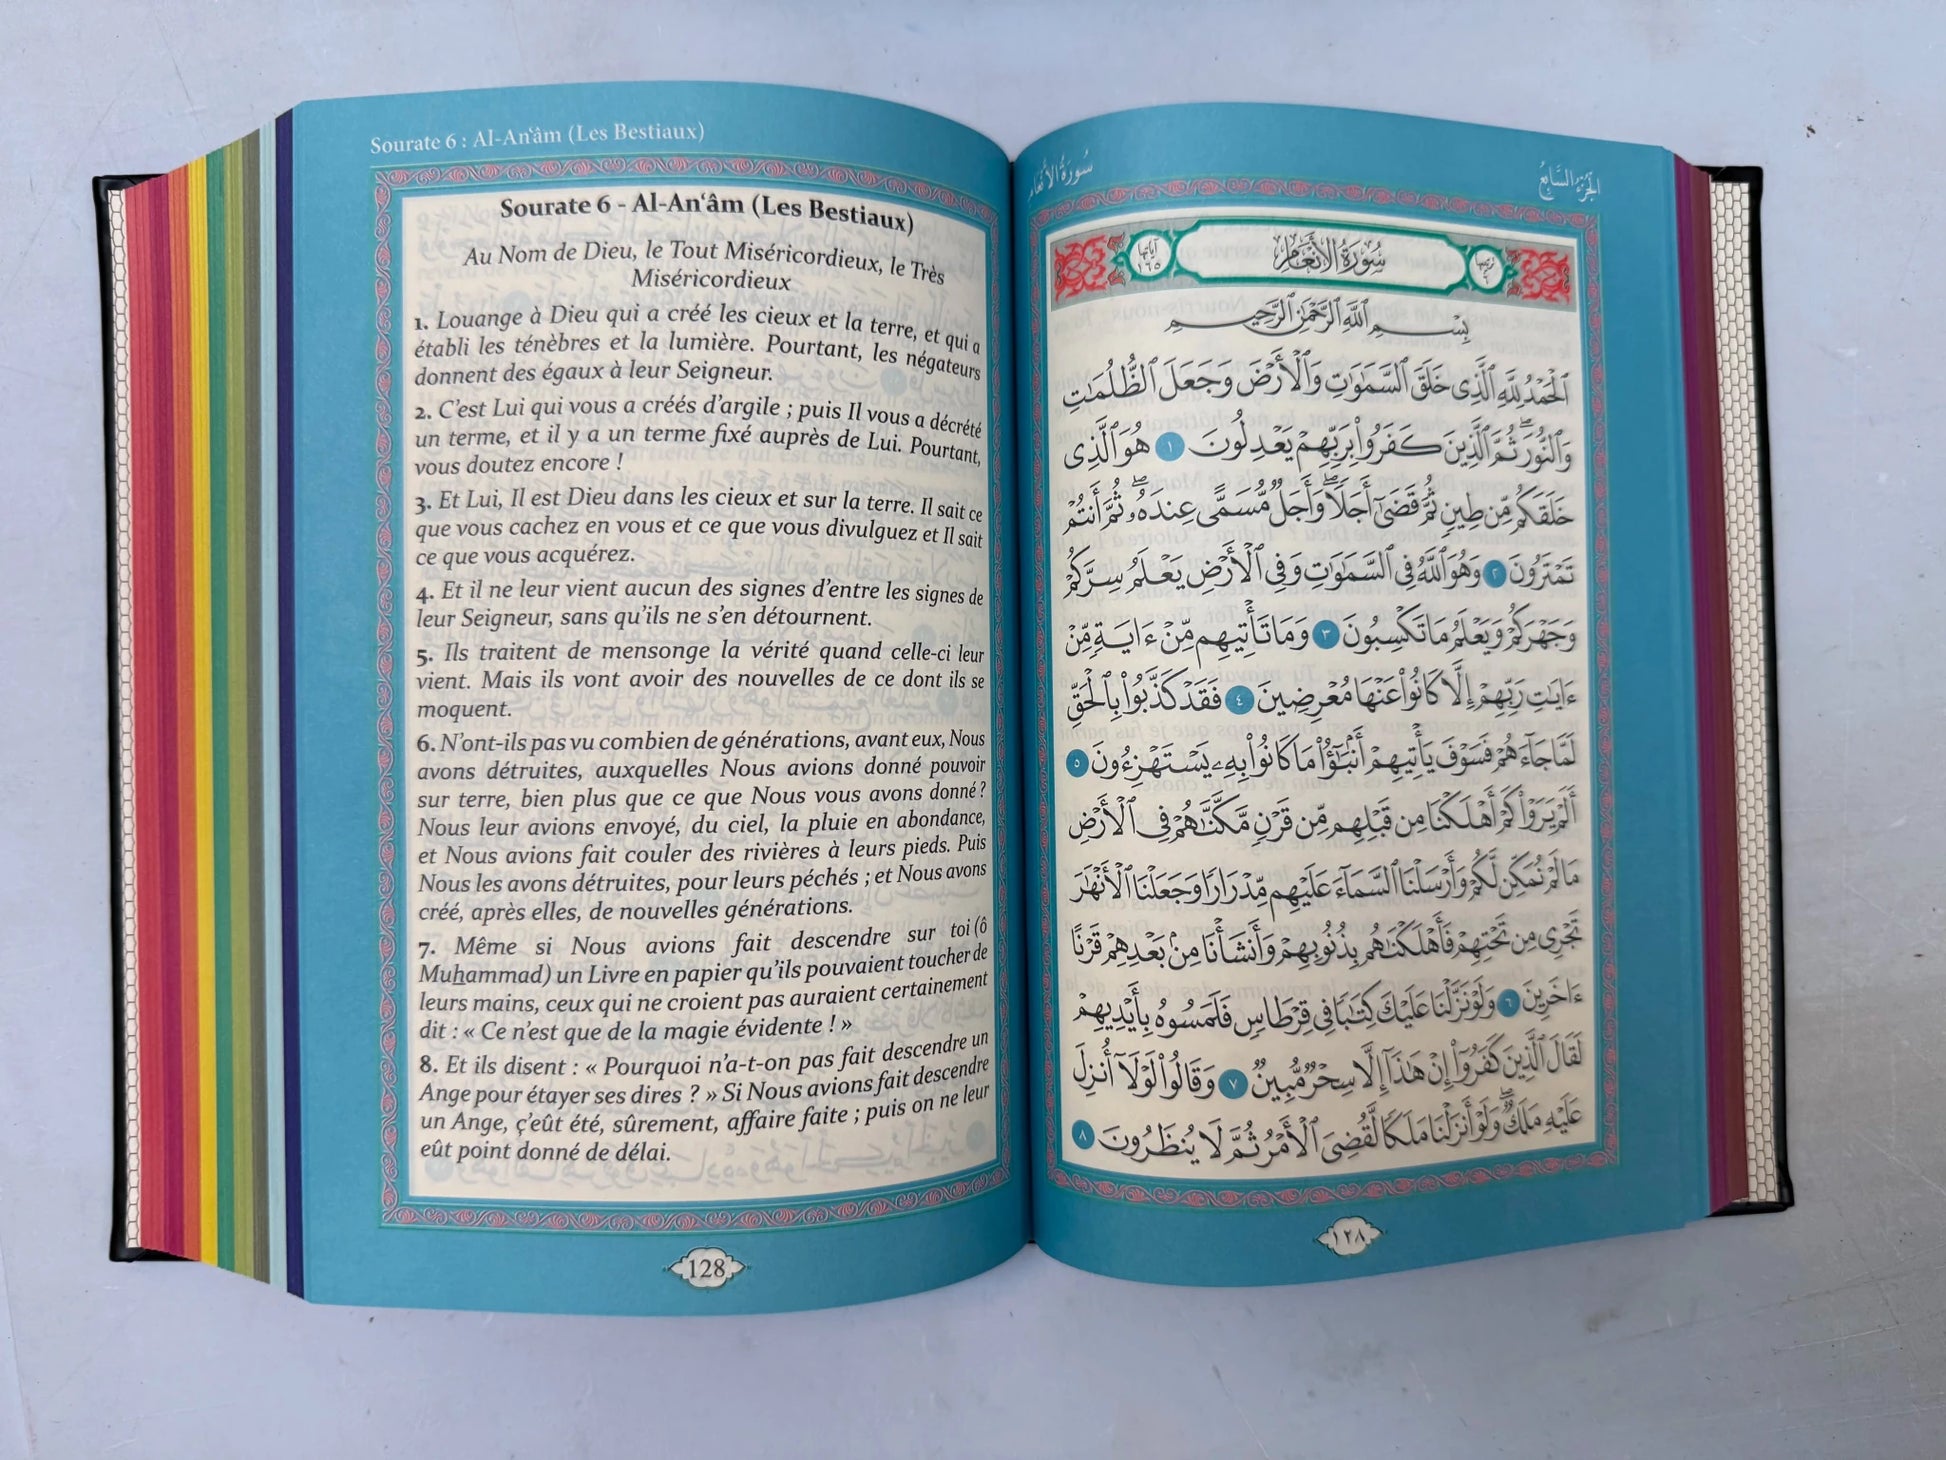 Sourate 6 : Al-An‘âm (Les Bestiaux)
Sourate 6 - Al-An‘âm (Les Bestiaux)
Au Nom de Dieu, le Tout Miséricordieux, le Très
Miséricordieux
1. Louange à Dieu qui a créé les cieux et la terre, et qui a
établi les ténèbres et la lumière. Pourtant, les négateurs
donnent des égaux à leur Seigneur.
2. C’est Lui qui vous a créés d’argile ; puis Il vous a décrété
un terme, et il y a un terme fixé auprès de Lui. Pourtant,
vous doutez encore !
3. Et Lui, Il est Dieu dans les cieux et sur la terre. Il sait ce
que vous cachez en vous et ce que vous divulguez et Il sait
ce que vous acquérez.
4. Et il ne leur vient aucun des signes d’entre les signes de
leur Seigneur, sans qu’ils ne s’en détournent.
5. Ils traitent de mensonge la vérité quand celle-ci leur
vient. Mais ils vont avoir des nouvelles de ce dont ils se
moquent.
6. N’ont-ils pas vu combien de générations, avant eux, Nous
avons détruites, auxquelles Nous avions donné pouvoir
sur terre, bien plus que ce que Nous vous avons donné ?
Nous leur avions envoyé, du ciel, la pluie en abondance,
et Nous avions fait couler des rivières à leurs pieds. Puis
Nous les avons détruites, pour leurs péchés ; et Nous avons
créé, après elles, de nouvelles générations.
7. Même si Nous avions fait descendre sur toi (ô
Muhammad) un Livre en papier qu’ils pouvaient toucher de
leurs mains, ceux qui ne croient pas auraient certainement
dit : « Ce n’est que de la magie évidente ! »
8. Et ils disent : « Pourquoi n’a-t-on pas fait descendre un
Ange pour étayer ses dires ? » Si Nous avions fait descendre
un Ange, ç’eût été, sûrement, affaire faite ; puis on ne leur
eût point donné de délai.
128
الجزء السابع
سورة الأنعام
ترتيبها ٦
سُورَةُ الأَنْعَامِ
آياتها ١٦٥
بِسْمِ ٱللَّهِ ٱلرَّحْمَٰنِ ٱلرَّحِيمِ
ٱلْحَمْدُ لِلَّهِ ٱلَّذِى خَلَقَ ٱلسَّمَٰوَٰتِ وَٱلْأَرْضَ وَجَعَلَ ٱلظُّلُمَٰتِ
وَٱلنُّورَ ۖ ثُمَّ ٱلَّذِينَ كَفَرُوا۟ بِرَبِّهِمْ يَعْدِلُونَ ١ هُوَ ٱلَّذِى
خَلَقَكُم مِّن طِينٍ ثُمَّ قَضَىٰٓ أَجَلًا ۖ وَأَجَلٌ مُّسَمًّى عِندَهُۥ ۖ ثُمَّ أَنتُمْ
تَمْتَرُونَ ٢ وَهُوَ ٱللَّهُ فِى ٱلسَّمَٰوَٰتِ وَفِى ٱلْأَرْضِ يَعْلَمُ سِرَّكُمْ
وَجَهْرَكُمْ وَيَعْلَمُ مَا تَكْسِبُونَ ٣ وَمَا تَأْتِيهِم مِّنْ ءَايَةٍ مِّنْ
ءَايَٰتِ رَبِّهِمْ إِلَّا كَانُوا۟ عَنْهَا مُعْرِضِينَ ٤ فَقَدْ كَذَّبُوا۟ بِٱلْحَقِّ
لَمَّا جَآءَهُمْ فَسَوْفَ يَأْتِيهِمْ أَنۢبَٰٓؤُا۟ مَا كَانُوا۟ بِهِۦ يَسْتَهْزِءُونَ ٥
أَلَمْ يَرَوْا۟ كَمْ أَهْلَكْنَا مِن قَبْلِهِم مِّن قَرْنٍ مَّكَّنَّٰهُمْ فِى ٱلْأَرْضِ
مَا لَمْ نُمَكِّن لَّكُمْ وَأَرْسَلْنَا ٱلسَّمَآءَ عَلَيْهِم مِّدْرَارًا وَجَعَلْنَا ٱلْأَنْهَٰرَ
تَجْرِى مِن تَحْتِهِمْ فَأَهْلَكْنَٰهُم بِذُنُوبِهِمْ وَأَنشَأْنَا مِنۢ بَعْدِهِمْ قَرْنًا
ءَاخَرِينَ ٦ وَلَوْ نَزَّلْنَا عَلَيْكَ كِتَٰبًا فِى قِرْطَاسٍ فَلَمَسُوهُ بِأَيْدِيهِمْ
لَقَالَ ٱلَّذِينَ كَفَرُوٓا۟ إِنْ هَٰذَآ إِلَّا سِحْرٌ مُّبِينٌ ٧ وَقَالُوا۟ لَوْلَآ أُنزِلَ
عَلَيْهِ مَلَكٌ ۖ وَلَوْ أَنزَلْنَا مَلَكًا لَّقُضِىَ ٱلْأَمْرُ ثُمَّ لَا يُنظَرُونَ ٨
١٢٨